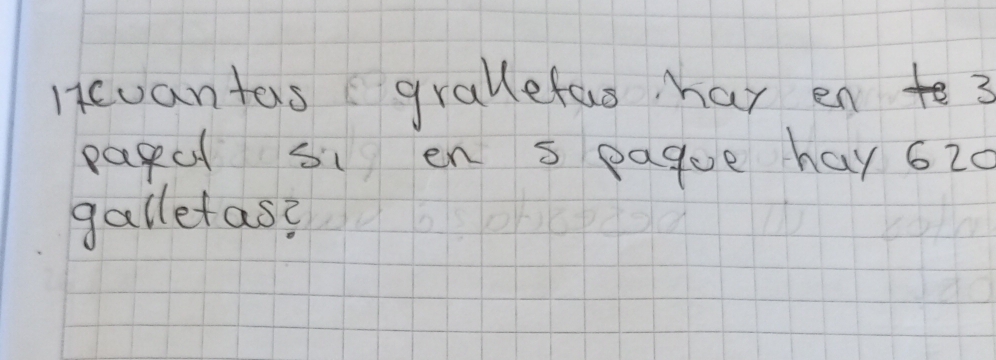 1¿cuantas gralletas hay en te 3
paqul si en 5 paque hay 620
galletas?